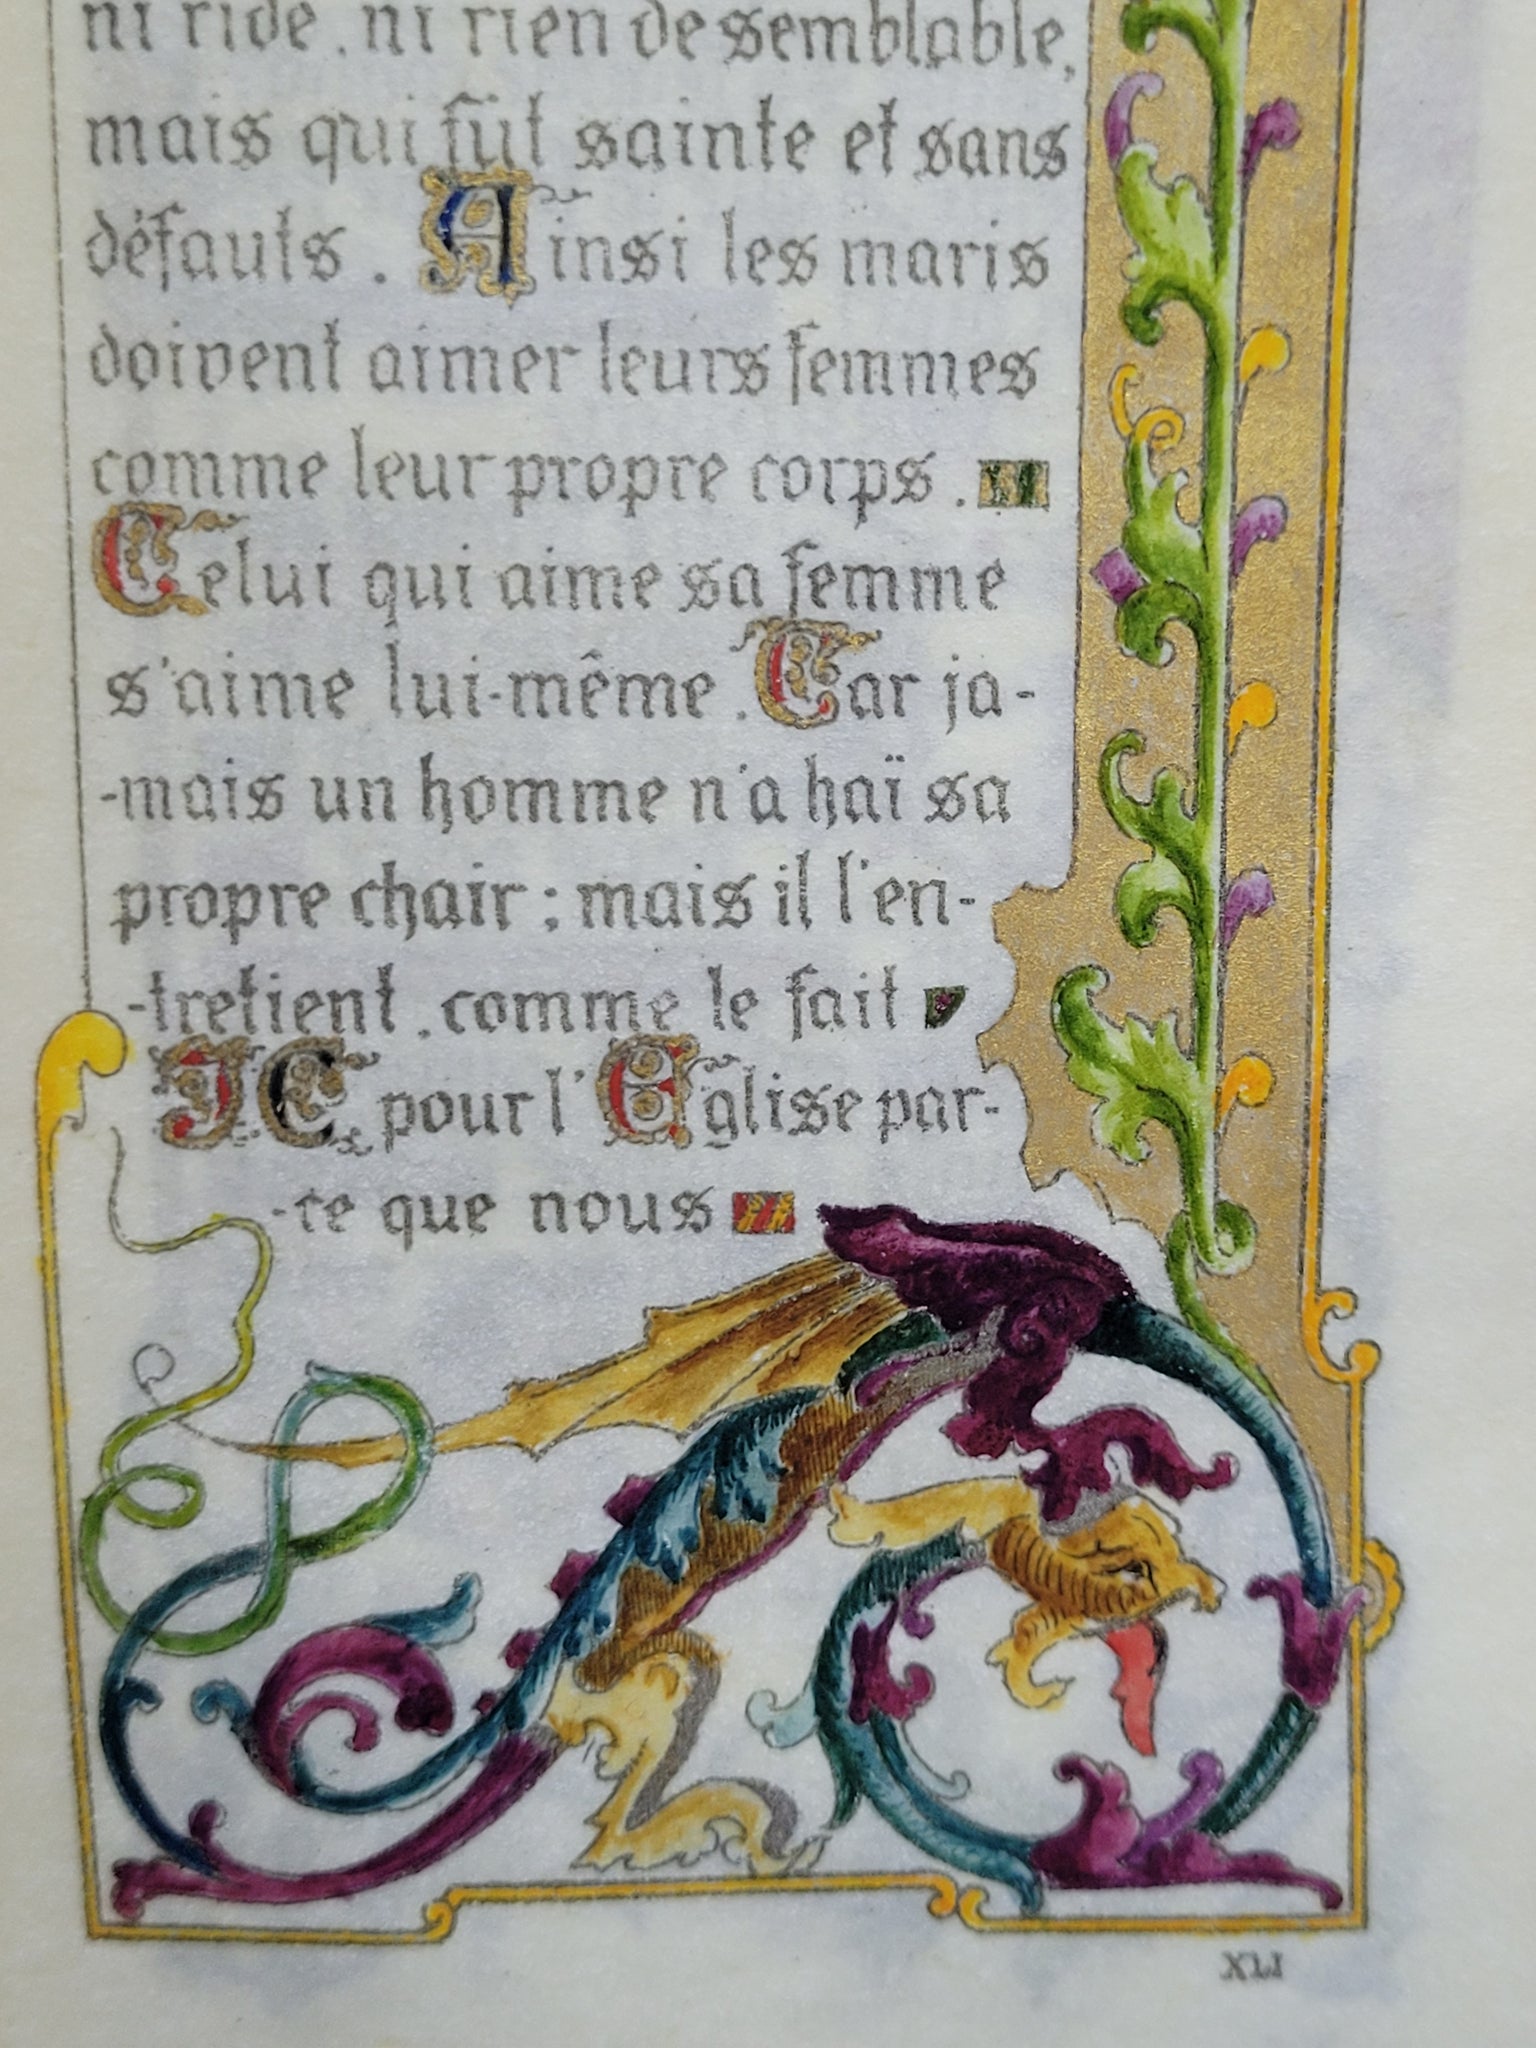 ni ride, ni rien de semblable,
mais qui fut sainte et sans
défauts. Ainsi les maris
doivent aimer leurs femmes
comme leur propre corps.
Celui qui aime sa femme
s'aime lui-même. Car ja-
-mais un homme n'a haï sa
propre chair; mais il l'en-
-tretient, comme le fait
JC pour l'Eglise par-
-ce que nous
XLI